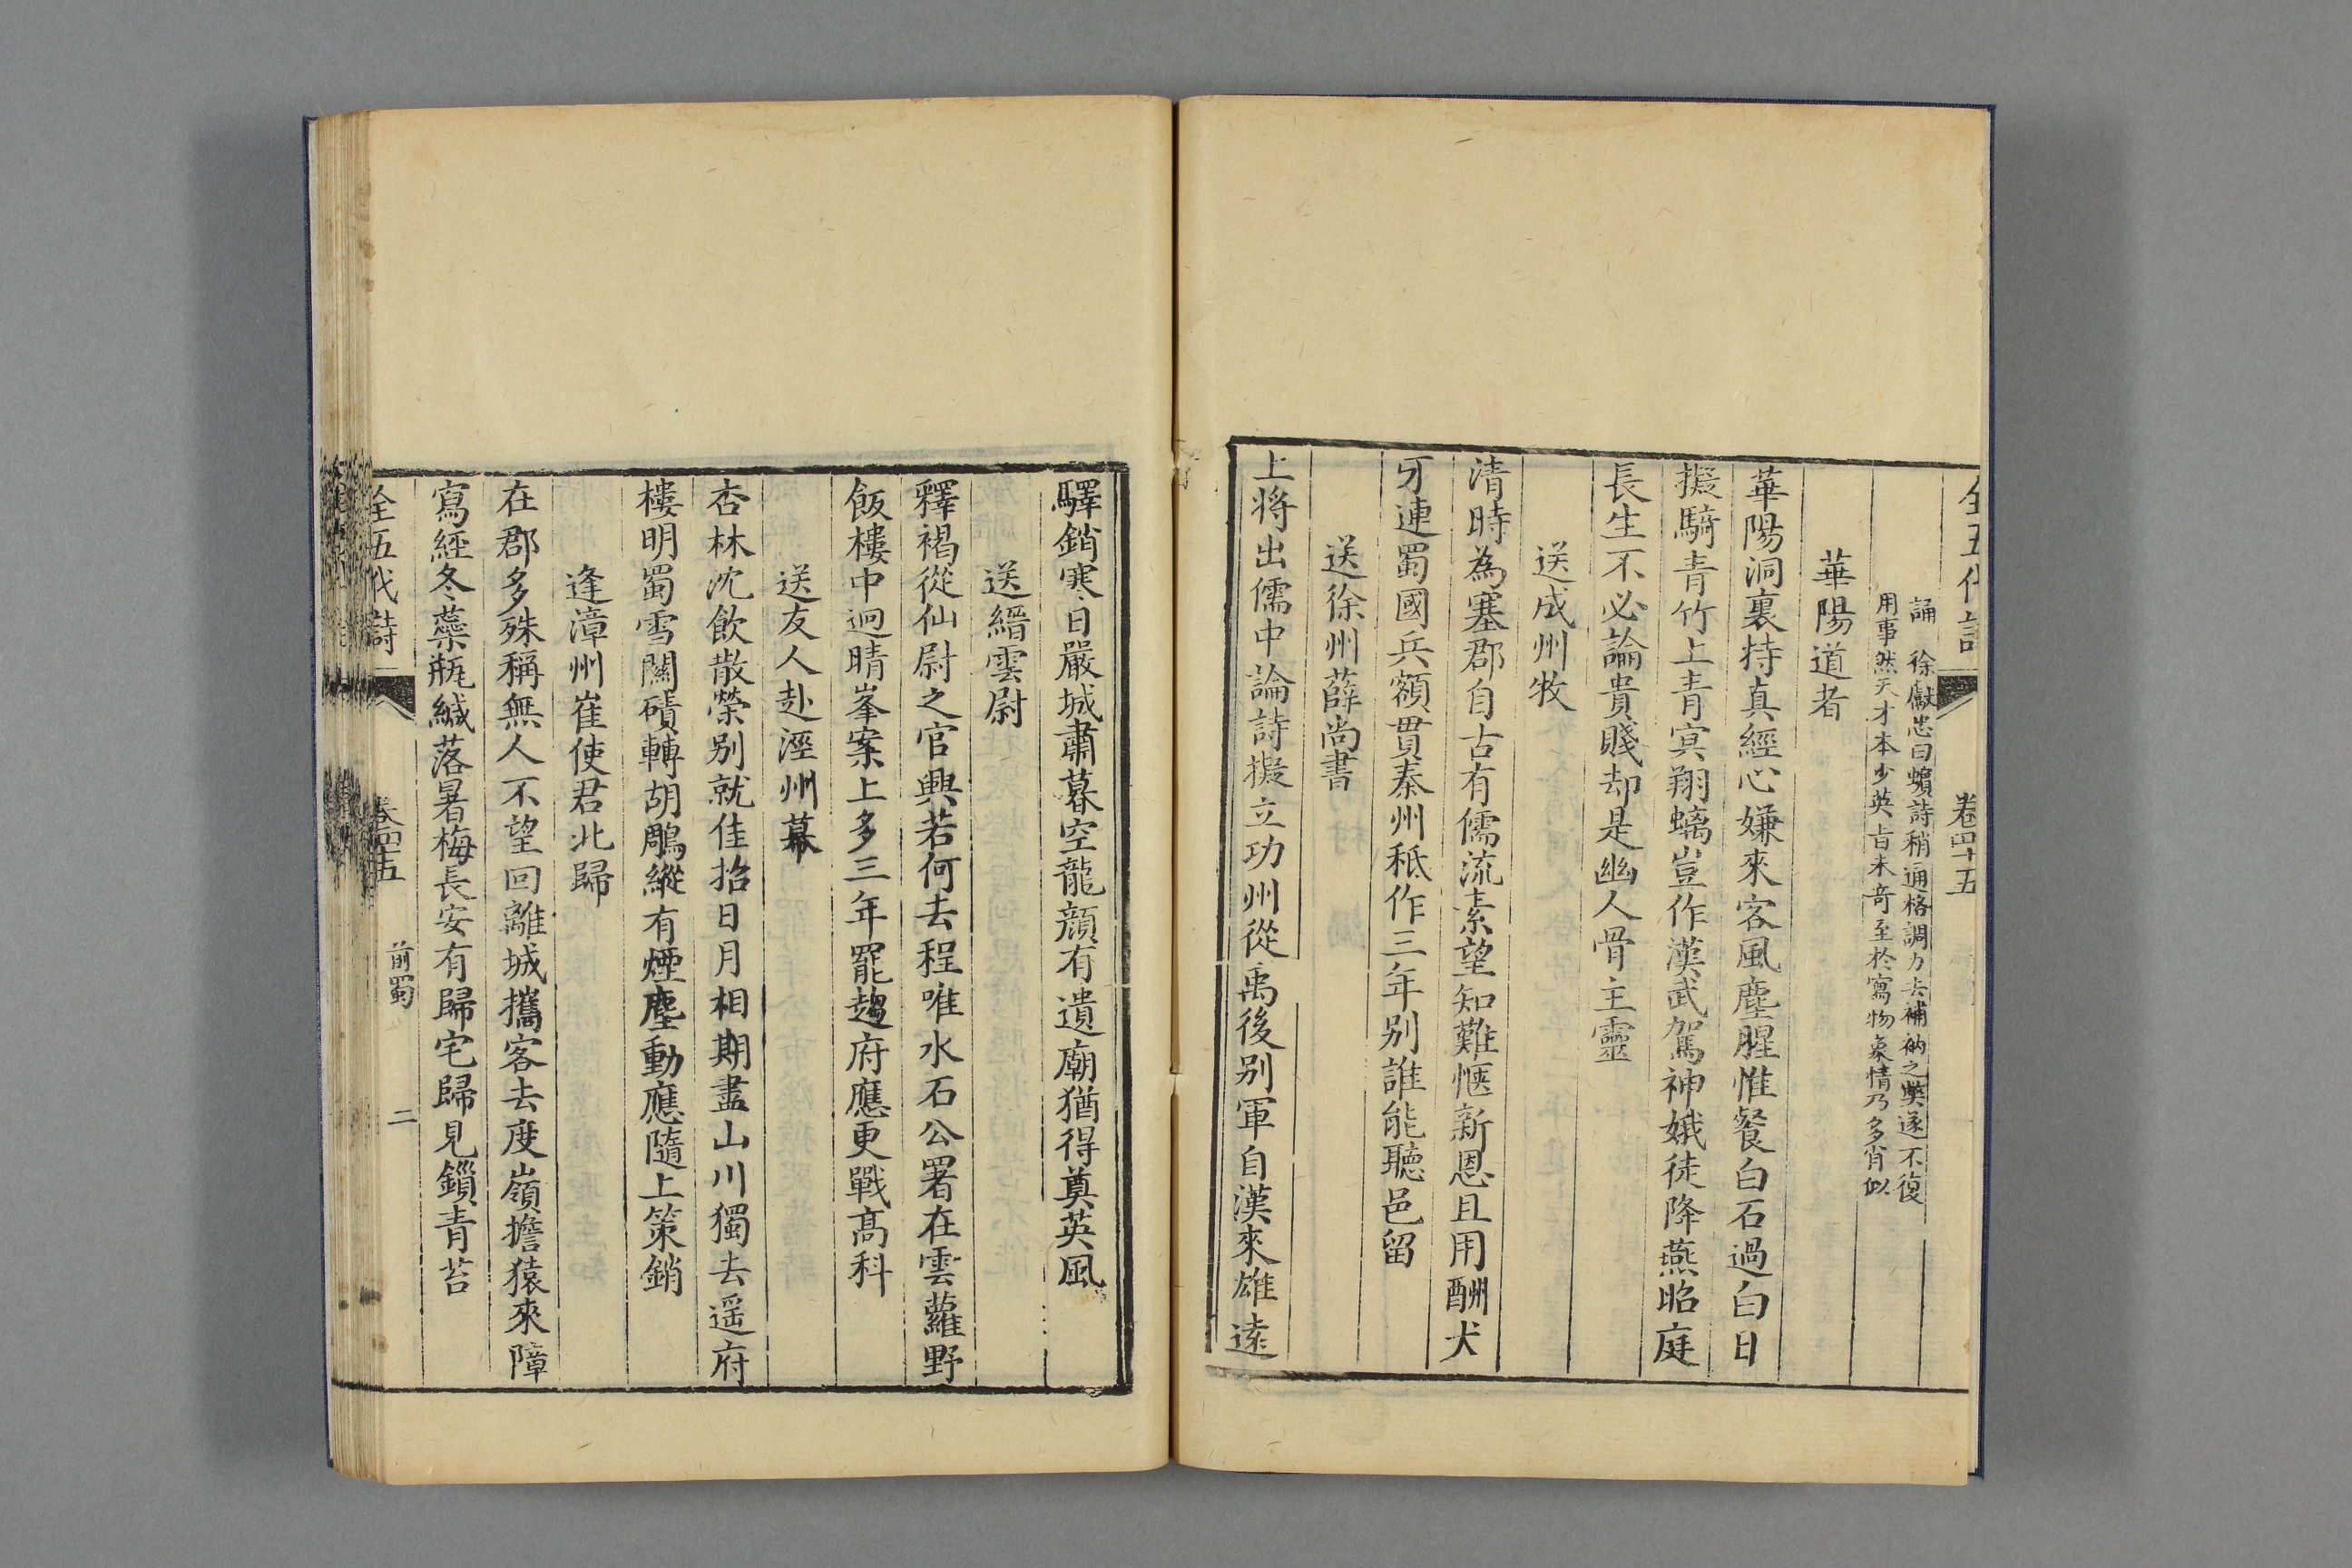 全五代詩
卷四十五
誦　徐獻忠曰蠙詩稍通格調力去補衲之獘遂不復
用事然天才本少英旨未奇至於寫物象情乃多肖似
華陽道者
華陽洞裏持真經心嫌來客風塵腥惟餐白石過白日
擬騎青竹上青冥翔螭豈作漢武駕神娥徒降燕昭庭
長生不必論貴賤却是幽人骨主靈
送成州牧
清時為塞郡自古有儒流素望知難愜新恩且用酬犬
牙連蜀國兵額貫秦州秖作三年别誰能聽邑留
送徐州薛尚書
上將出儒中論詩擬立功州從禹後别軍自漢來雄遠
驛銷寒日嚴城肅暮空龍顔有遺廟猶得奠英風
送縉雲尉
釋褐從仙尉之官興若何去程唯水石公署在雲蘿野
飯樓中迥晴峯案上多三年罷趨府應更戰髙科
送友人赴涇州幕
杏林沈飲散榮别就佳招日月相期盡山川獨去遥府
樓明蜀雪關磧轉胡鵰縱有煙塵動應隨上策銷
逢漳州崔使君北歸
在郡多殊稱無人不望回離城攜客去度嶺擔猿來障
寫經冬蘂瓶緘落暑梅長安有歸宅歸見鎻青苔
全五代詩
卷四十五
前蜀
二